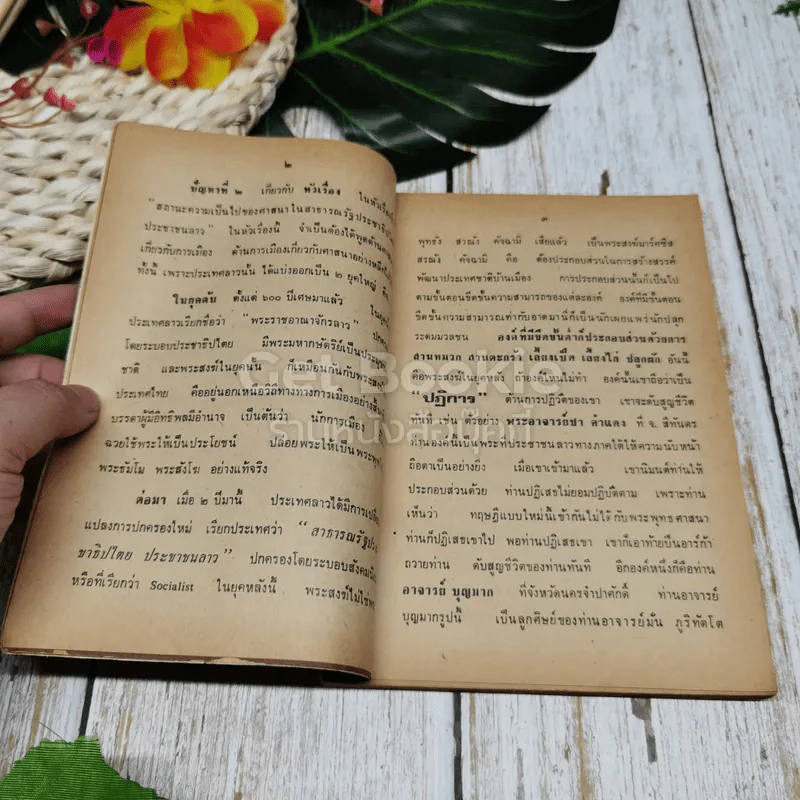 ๒
ปัญหาที่ ๒ เกี่ยวกับ หัวเรื่อง ในหัวเรื่อง
“สถานะความเป็นไปของศาสนาในสาธารณรัฐ ประชาธิป
ประชาชนลาว” ในหัวเรื่องนี้ จำเป็นต้องได้พูดด้าน
เกี่ยวกับการเมือง ด้านการเมืองเกี่ยวกับศาสนาอย่าง
ทั้งนี้ เพราะประเทศลาวนั้น ได้แบ่งออกเป็น ๒ ยุคใหญ่ คือ
ในยุคต้น ตั้งแต่ ๖๐๐ ปีเศษมาแล้ว ในยุค
ประเทศลาวเรียกชื่อว่า “พระราชอาณาจักรลาว” ปก
โดยระบอบประชาธิปไตย มีพระมหากษัตริย์เป็นประมุข
ชาติ และพระสงฆ์ในยุคนั้น ก็เหมือนกันกับพระ
ประเทศไทย คืออยู่นอกเหนือวิถีทางทางการเมืองอย่าง
บรรดาผู้มีอิทธิพลมีอำนาจ เป็นต้นว่า นักการเมือง
ฉวยใช้พระให้เป็นประโยชน์ ปล่อยพระให้เป็นพระพุ
พระธัมโม พระสังโฆ อย่างแท้จริง
ต่อมา เมื่อ ๒ ปีมานี้ ประเทศลาวได้มีการ
แปลงการปกครองใหม่ เรียกประเทศว่า “สาธารณรัฐประ
ชาธิปไตย ประชาชนลาว” ปกครองโดยระบอบสังคม
หรือที่เรียกว่า Socialist ในยุคหลังนี้ พระสงฆ์ไม่ใช่
๓
พุทธัง สรณัง คัจฉามิ เสียแล้ว เป็นพระสงฆ์มาร์คซีส
สรณัง คัจฉามิ คือ ต้องประกอบส่วนในการสร้างสรรค์
พัฒนาประเทศชาติบ้านเมือง การประกอบส่วนนั้นก็เป็นไป
ตามขั้นตอนขีดขั้นความสามารถของแต่ละองค์ องค์ที่มีขั้นตอน
ขีดขั้นความสามารถเท่ากับอาตมานี่ก็เป็นนักเผยแพร่นักปลุก
ระดมมวลชน องค์ที่มีขีดขั้นต่ำก็ประกอบส่วนด้วยการ
สานหมวก สานตะกร้า เลี้ยงเป็ด เลี้ยงไก่ ปลูกผัก อันนี้
คือพระสงฆ์ในยุคหลัง ถ้าองค์ไหนไม่ทำ องค์นั้นเขาถือว่าเป็น
“ปฏิการ” ต้านการปฏิวัติของเขา เขาจะดับสูญชีวิต
ทันที เช่น ตัวอย่าง พระอาจารย์ปา คำแดง ที่ จ. สีทันดร
ท่านองค์นี้เป็นพระที่ประชาชนลาวทางภาคใต้ให้ความนับหน้า
ถือตาเป็นอย่างยิ่ง เมื่อเขาเข้ามาแล้ว เขานิมนต์ท่านให้
ประกอบส่วนด้วย ท่านปฏิเสธไม่ยอมปฏิบัติตาม เพราะท่าน
เห็นว่า ทฤษฎีแบบใหม่นี้เข้ากันไม่ได้กับพระพุทธศาสนา
ท่านก็ปฏิเสธเขาไป พอท่านปฏิเสธเขา เขาก็เอาท้ายปืนอาร์ก้า
ถวายท่าน ดับสูญชีวิตของท่านทันที อีกองค์หนึ่งก็คือท่าน
อาจารย์ บุญมาก ที่จังหวัดนครจำปาศักดิ์ ท่านอาจารย์
บุญมากรูปนี้ เป็นลูกศิษย์ของท่านอาจารย์มั่น ภูริทัตโต
Get Bookie
ร้านหนังสือตุ๊กตุ่ย